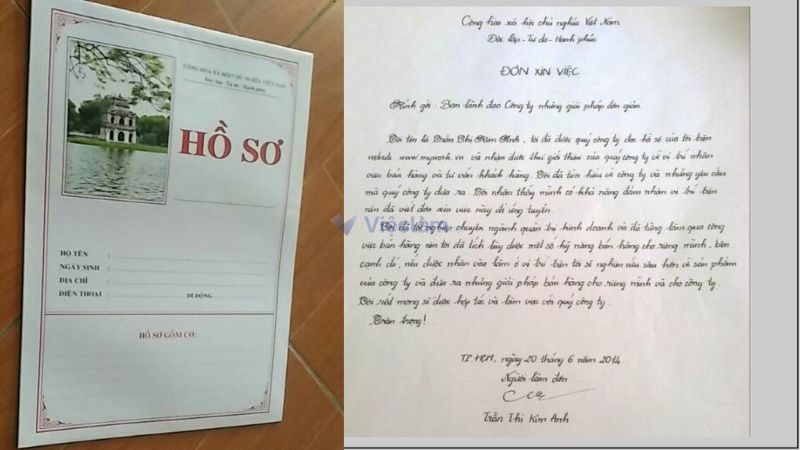 CỘNG HÒA XÃ HỘI CHỦ NGHĨA VIỆT NAM
Độc lập - Tự do - Hạnh phúc
HỒ SƠ
HỌ TÊN :
NGÀY SINH :
ĐỊA CHỈ :
ĐIỆN THOẠI : DI ĐỘNG
HỒ SƠ GỒM CÓ:
Việclàm
Cộng hòa xã hội chủ nghĩa Việt Nam
Độc lập - Tự do - Hạnh phúc
ĐƠN XIN VIỆC
Kính gởi : Ban lãnh đạo Công ty những giải pháp đơn giản.
Tôi tên là Trần Thị Kim Anh , tôi đã được quý công ty đọc hồ sơ của tôi trên
website www.mywork.vn và nhận được thư giới thiệu của quý công ty về vị trí nhân
viên bán hàng và tư vấn khách hàng. Tôi đã tìm hiểu về công ty và những yêu cầu
mà quý công ty đưa ra. Tôi nhận thấy mình có khả năng đảm nhận vị trí trên
nên đã viết đơn xin việc này để ứng tuyển.
Tôi đã tốt nghiệp chuyên ngành quản trị kinh doanh và đã từng làm qua công
việc bán hàng nên tôi đã tích lũy được một số kỹ năng bán hàng cho riêng mình, bên
cạnh đó, nếu được nhận vào làm ở vị trí trên tôi sẽ nghiên cứu sâu hơn về sản phẩm
của công ty và đưa ra những giải pháp bán hàng cho riêng mình và cho công ty.
Tôi rất mong sẽ được hợp tác và làm việc với quý công ty.
Trân trọng!
TP. HCM, ngày 20 tháng 6 năm 2014
Người làm đơn
Trần Thị Kim Anh